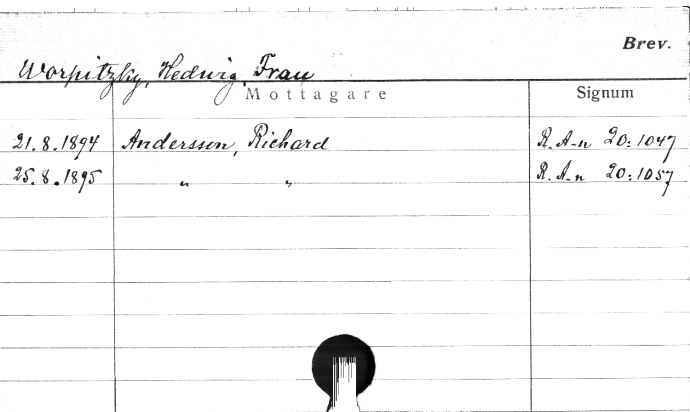 Brev.
Worpitzky, Hedwig, Frau
Mottagare Signum
21.8.1894 Andersson, Richard R. A-n 20:1047
25.8.1895 " " R. A-n 20:1057